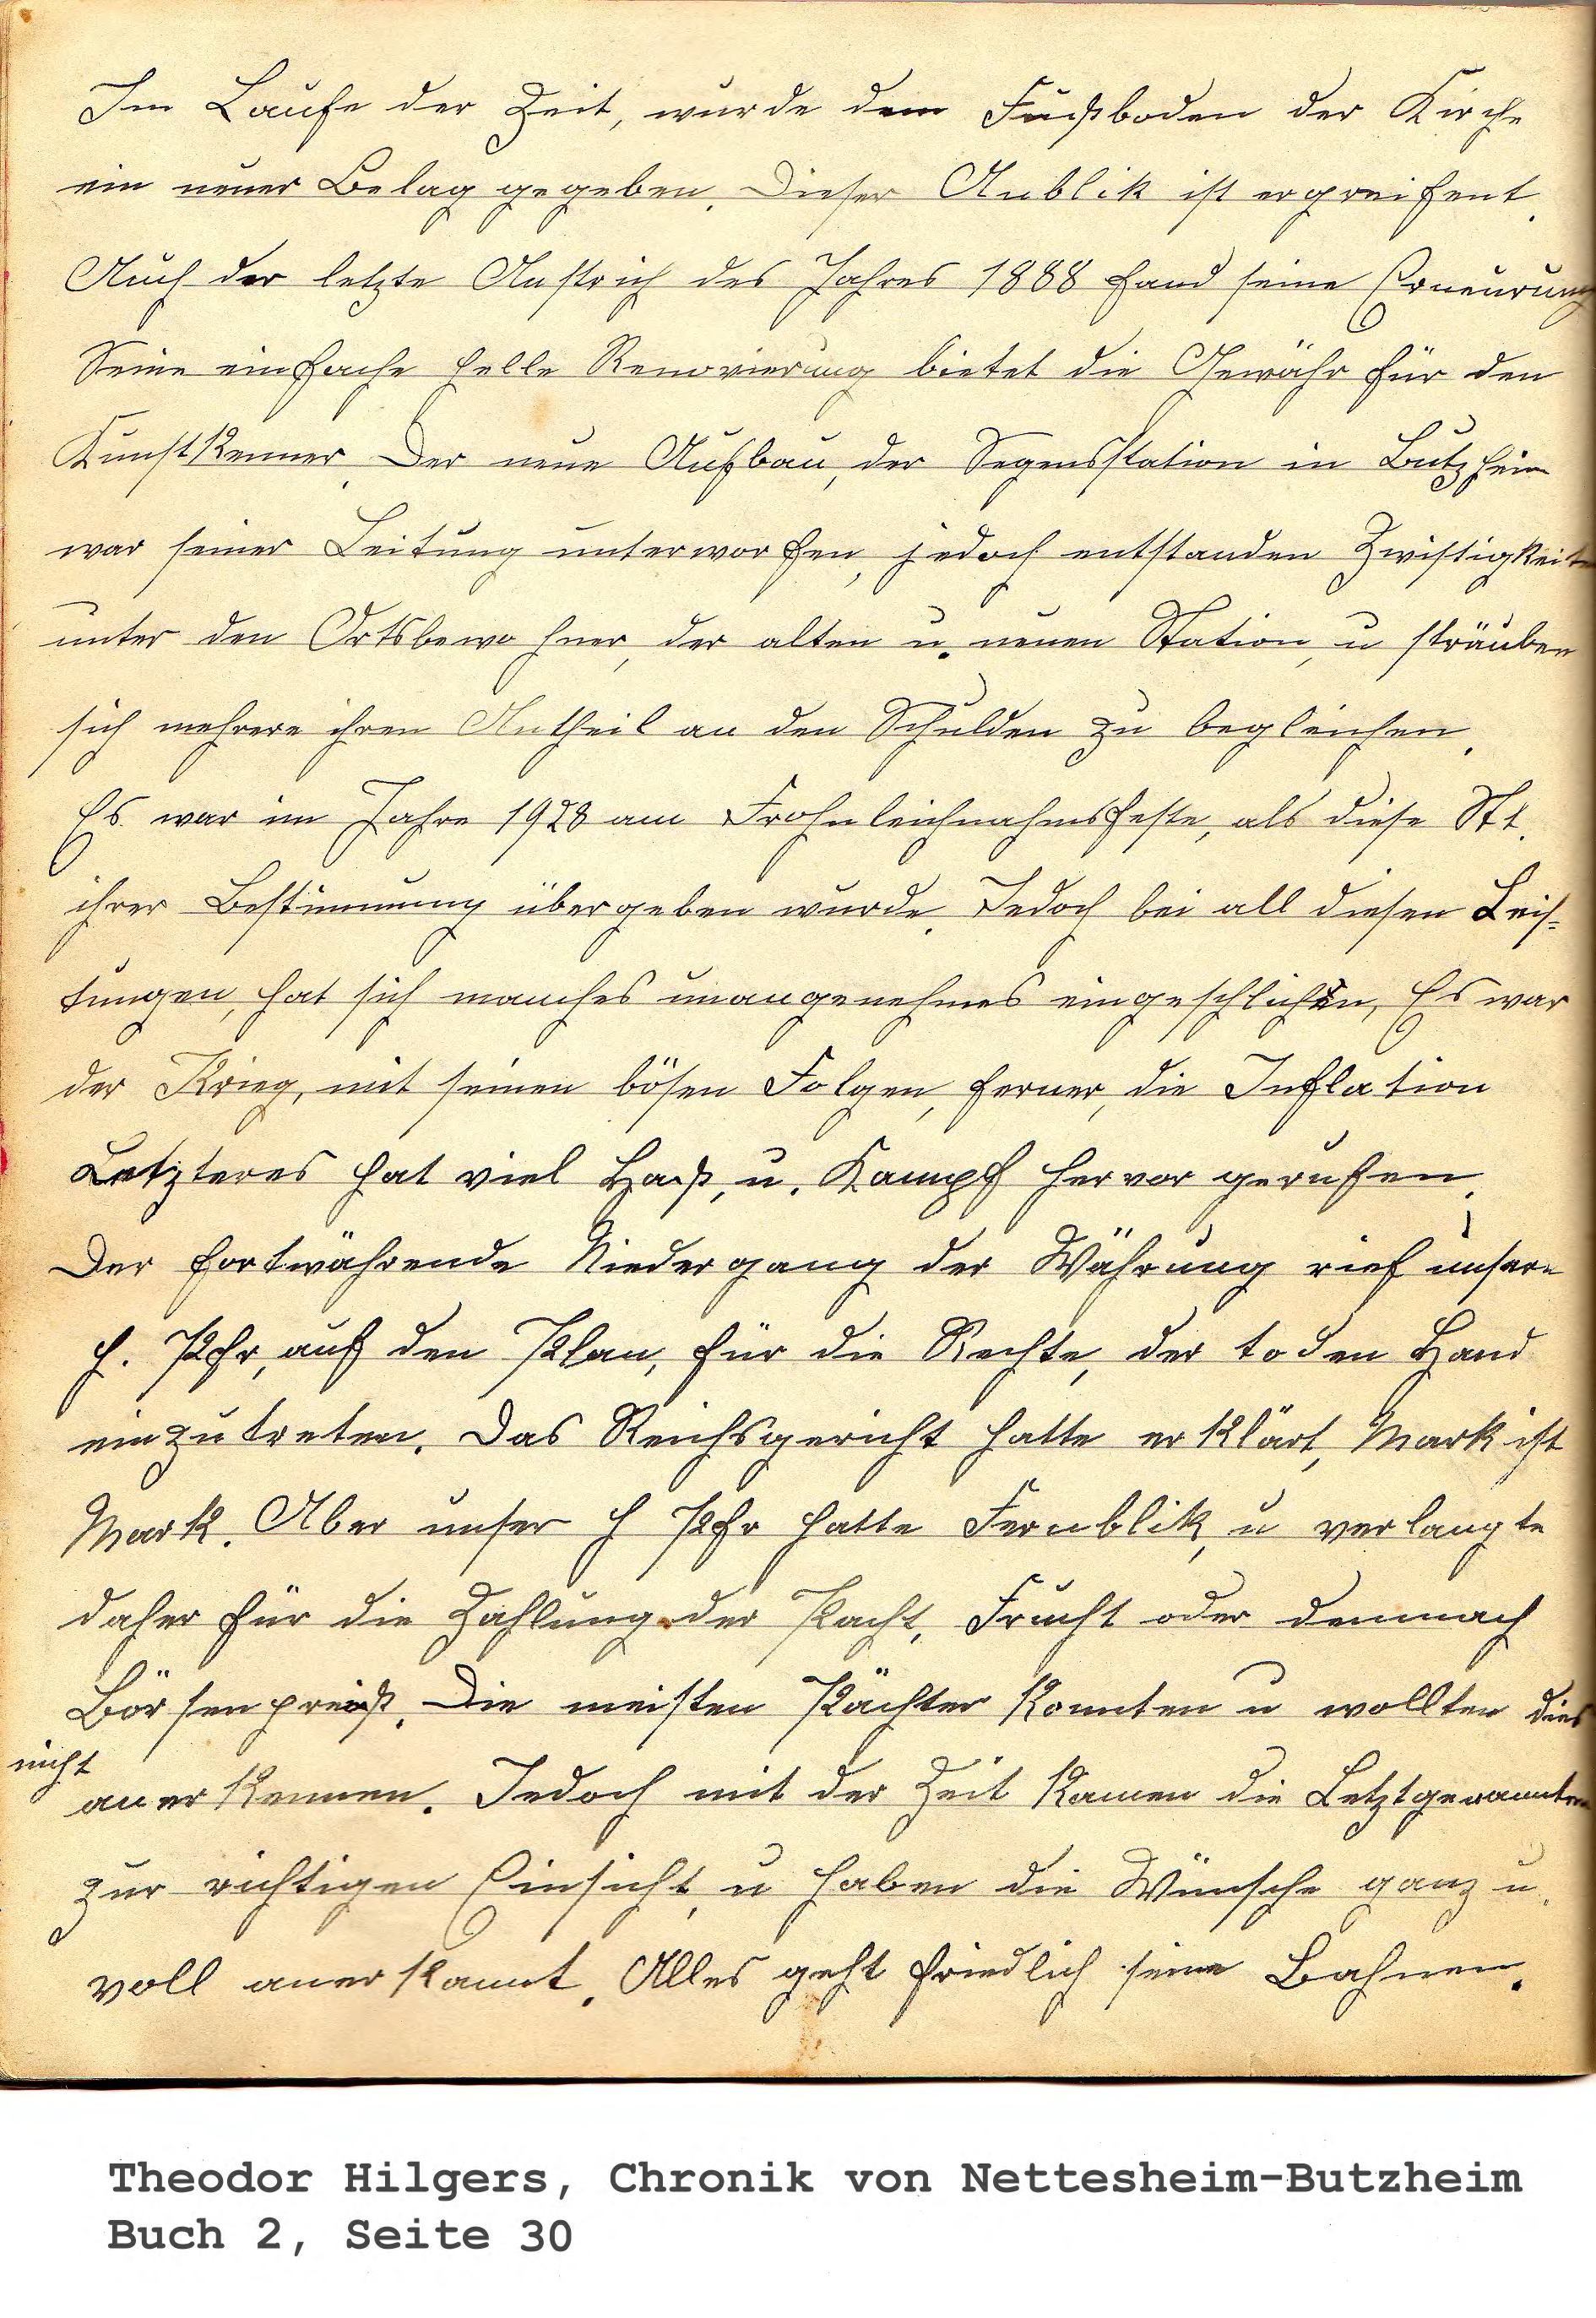 Im Laufe der Zeit, wurde dem Fußboden der Kirche
ein neuer Belag gegeben. Dieser Anblik ist ergreifent.
Auch der letzte Anstrich des Jahres 1888 fand seine Erneurung
Seine einfache helle Renovierung bietet die Gewähr für den
Kunstkenner. Der neue Aufbau, der Segensstation in Butzheim
war seiner Leitung unterworfen, jedoch entstanden Zwistigkeiten
unter den Ortsbewohner, der alten u. neuen Station, u sträuben
sich mehrere ihren Antheil an den Schulden zu begleichen.
Es war im Jahre 1928 am Frohnleichnahmsfeste, als diese Stt.
ihrer Bestimmung übergeben wurde. Jedoch bei all diesen Leis=
tungen, hat sich manches unangenehmes eingeschlichen, Es war
der Krieg, mit seinen bösen Folgen, ferner, die Inflation
Letzteres hat viel Haß, u. Kampf hervor gerufen.
Der fortwährende Niedergang der Währung rief unsern
H. Pfr, auf den Plan, für die Rechte, der toden Hand
einzutreten. Das Reichsgericht hatte erklärt, Mark ist
Mark. Aber unser H Pfr hatte Fernblik, u verlangte
daher für die Zahlung der Pacht, Frucht oder demnach
Börsenpreiß. Die meisten Pächter konnten u wollten dies
nicht
anerkennen. Jedoch mit der Zeit kamen die Letztgenannten
zur richtigen Einsicht, u haben die Wünsche ganz u.
voll anerkannt. Alles geht friedlich seine Bahnen.
Theodor Hilgers, Chronik von Nettesheim-Butzheim
Buch 2, Seite 30